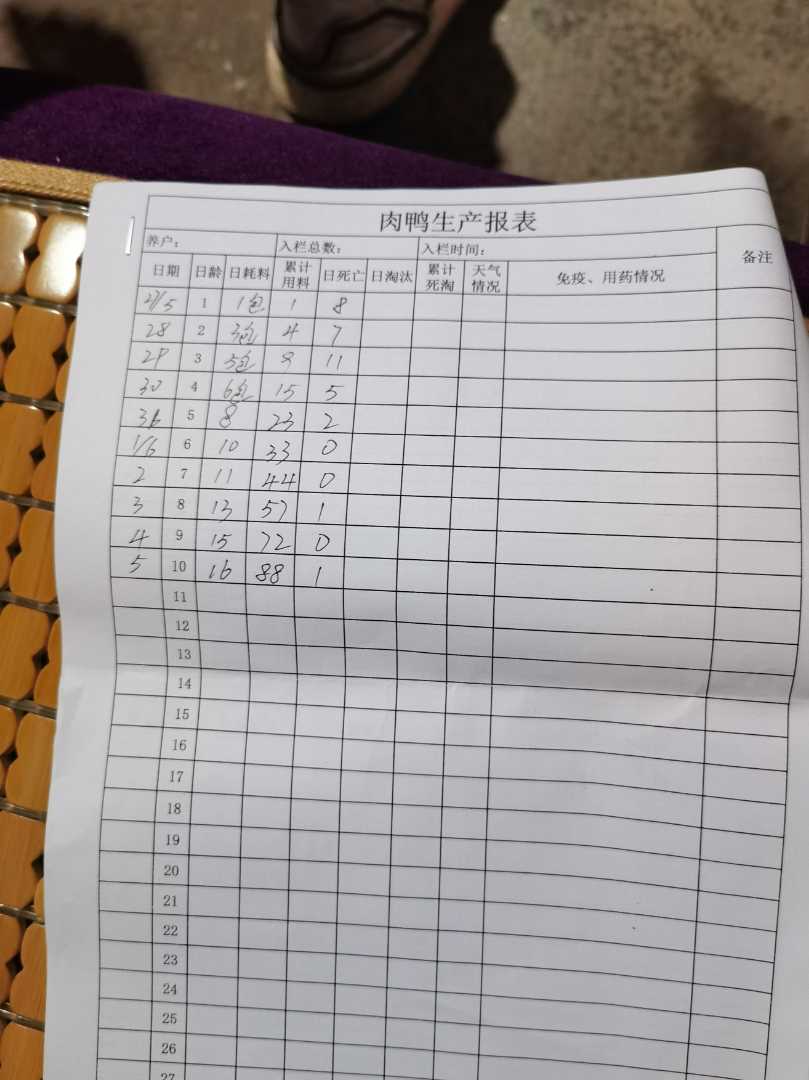 肉鸭生产报表
养户： 入栏总数： 入栏时间： 备注
日期 日龄 日耗料 累计用料 日死亡 日淘汰 累计死淘 天气情况 免疫、用药情况
27/5 1 1包 1 8
28 2 3包 4 7
29 3 5包 9 11
30 4 6包 15 5
31 5 8 23 2
1/6 6 10 33 0
2 7 11 44 0
3 8 13 57 1
4 9 15 72 0
5 10 16 88 1
11
12
13
14
15
16
17
18
19
20
21
22
23
24
25
26
27